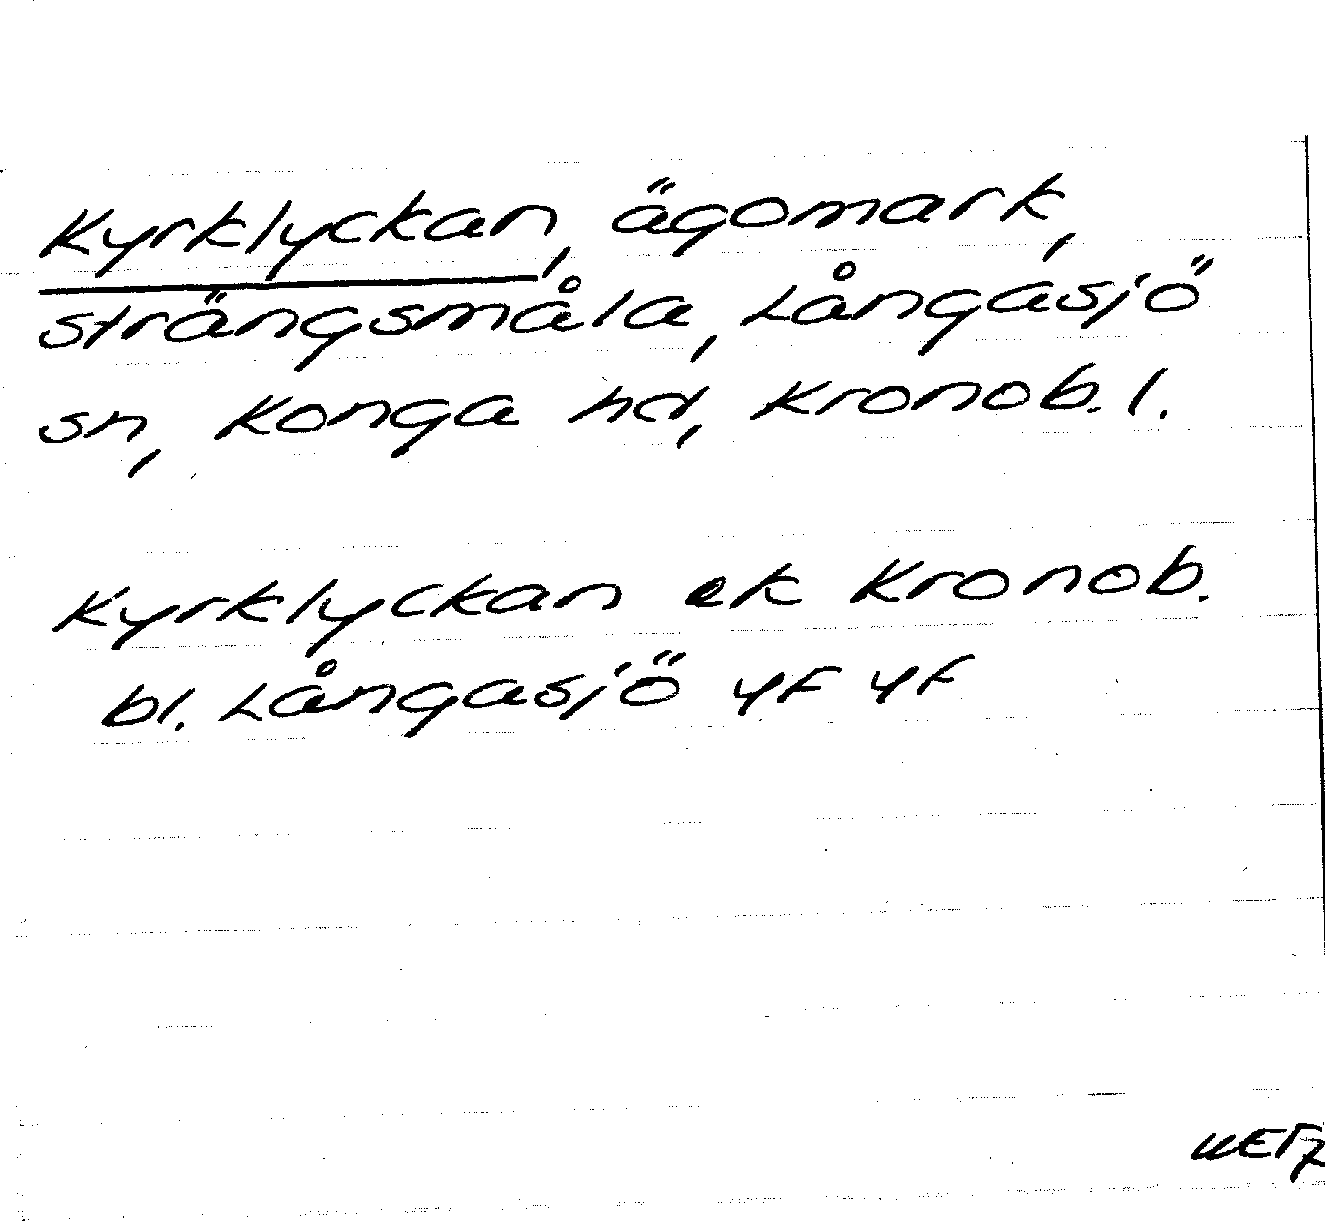 Kyrklyckan, ägomark,
Strängsmåla, Långasjö
sn, Konga hd, Kronob. l.
Kyrklyckan ek Kronob.
bl. Långasjö 4F 4f